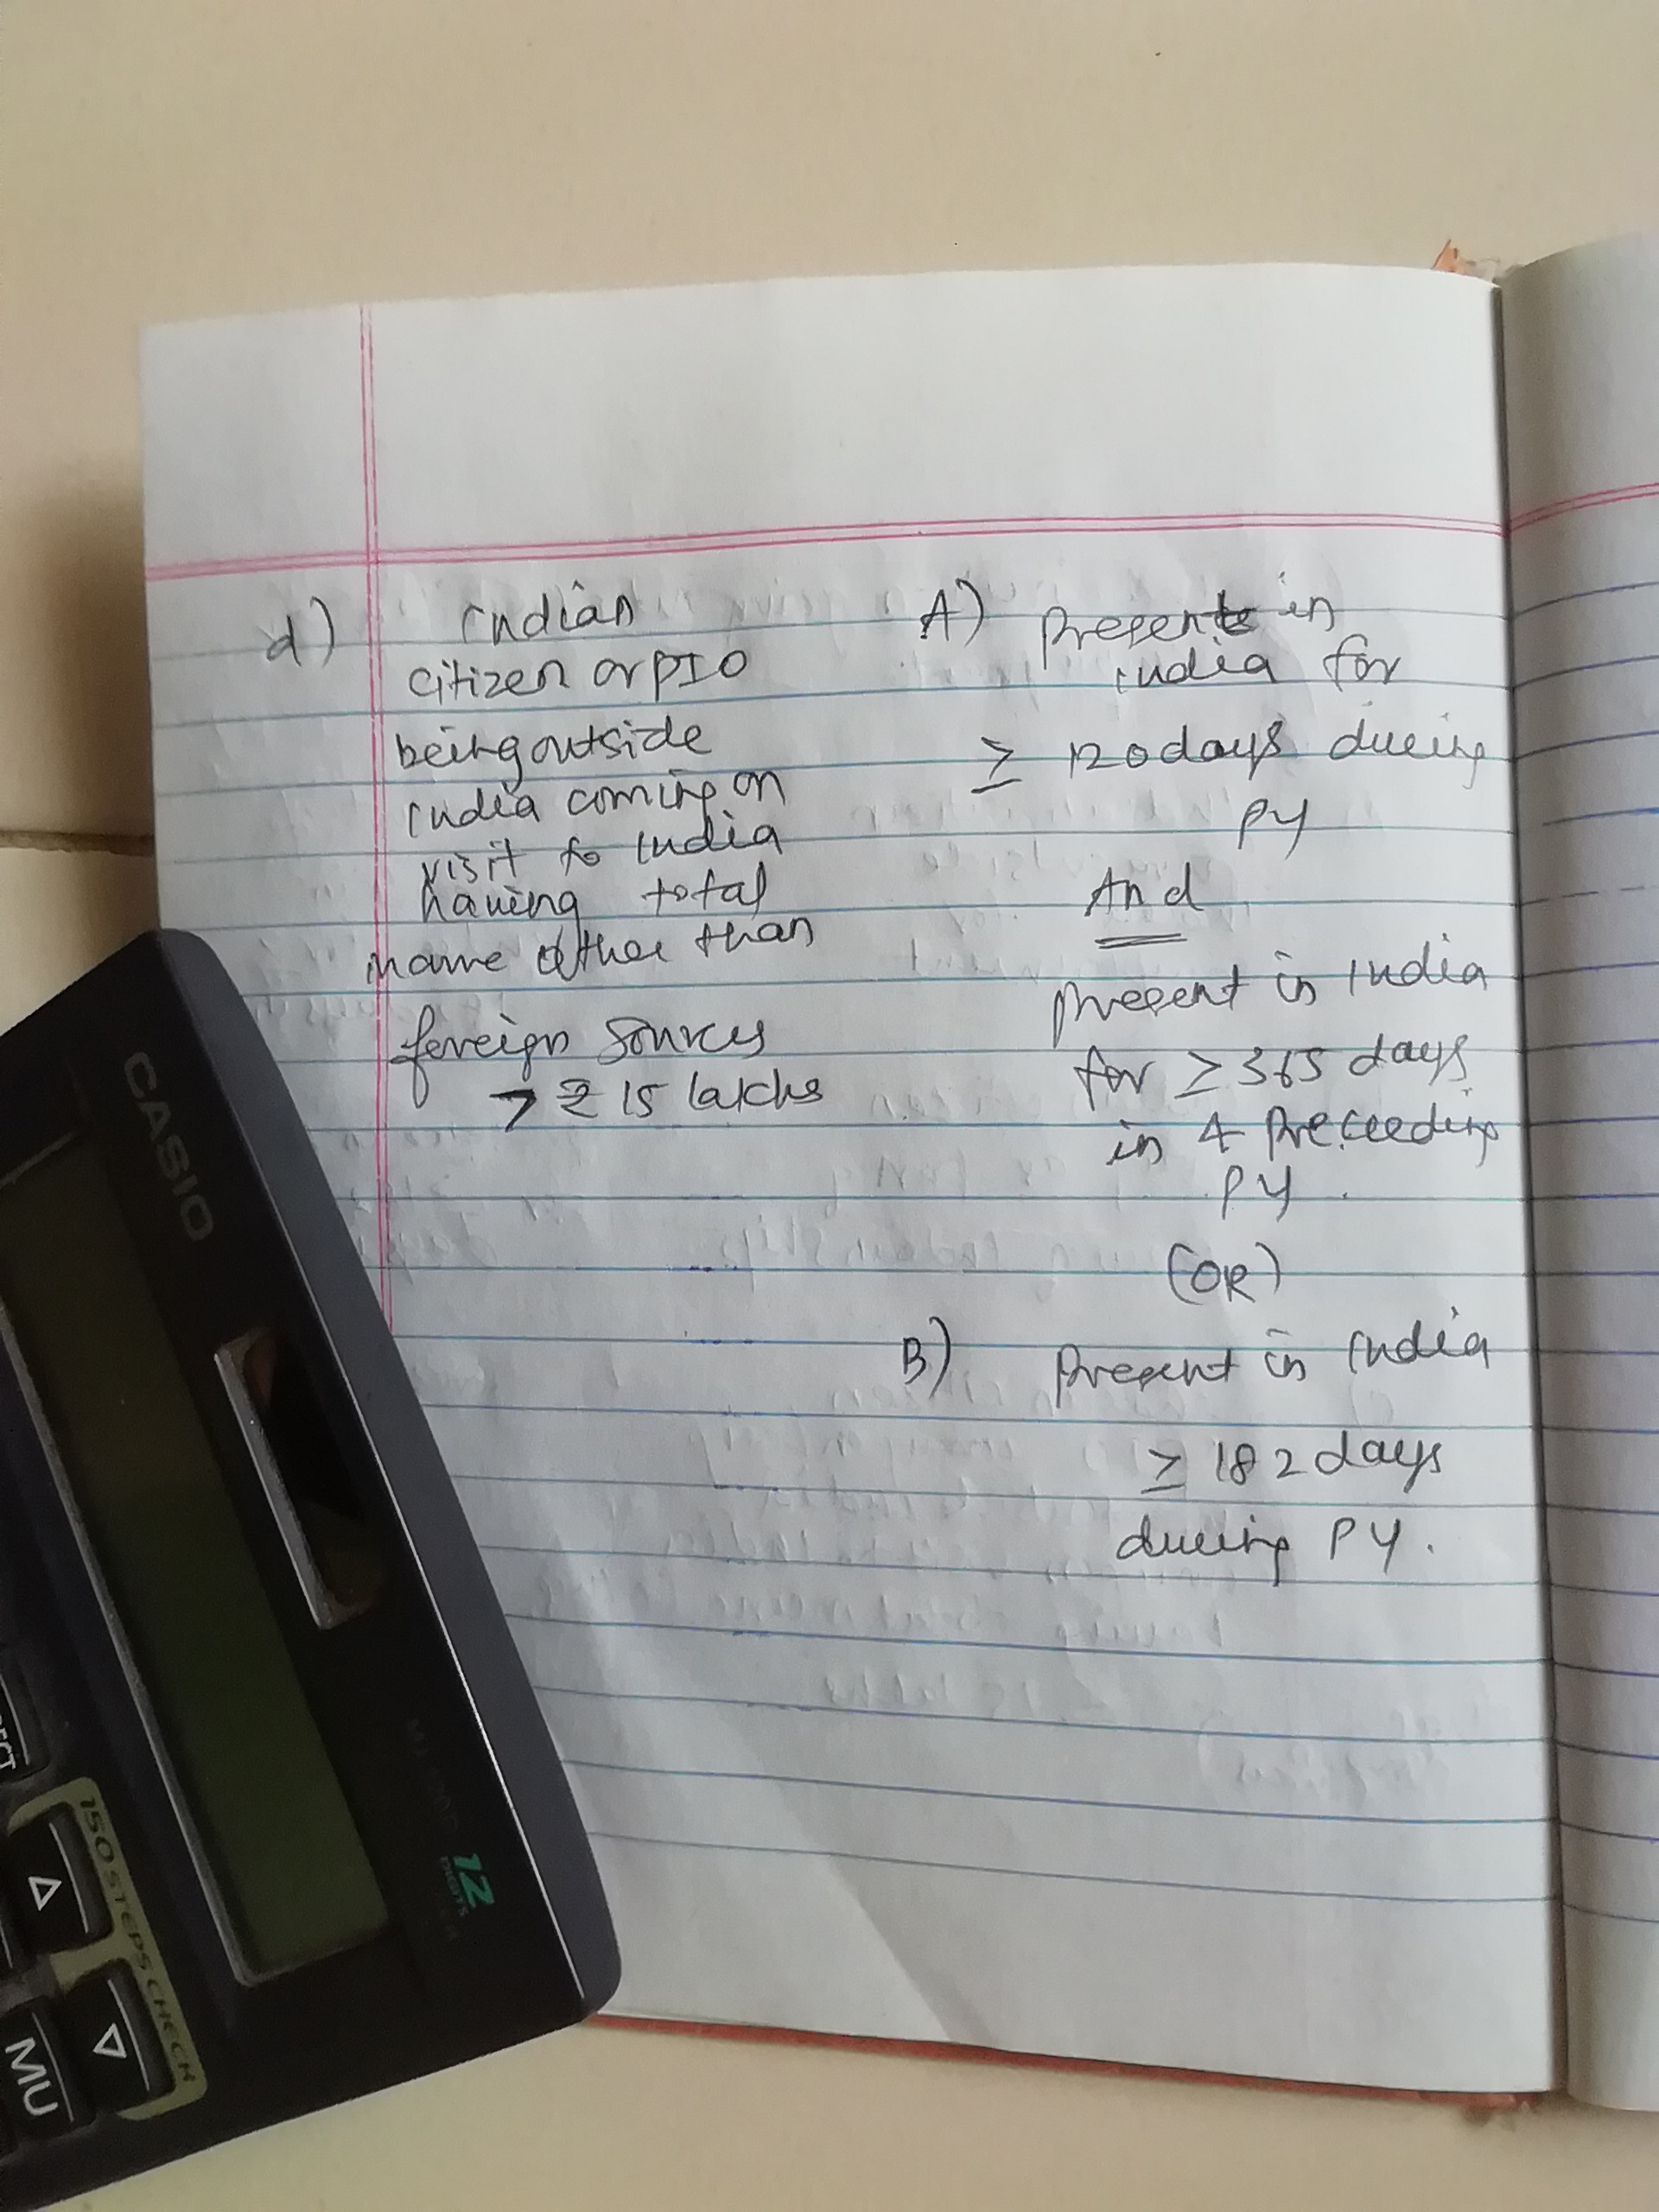 d)
indian
citizen or PIO
being outside
india coming on
visit to India
having total
income other than
foreign sources
> ₹ 15 lakhs
A) Present in
india for
≥ 120 days during
PY
And
Present in India
for ≥ 365 days
in 4 Preceeding
PY.
(OR)
B) Present in India
≥ 182 days
during PY.
CASIO
12
DIGITS
150 STEPS CHECK
MU